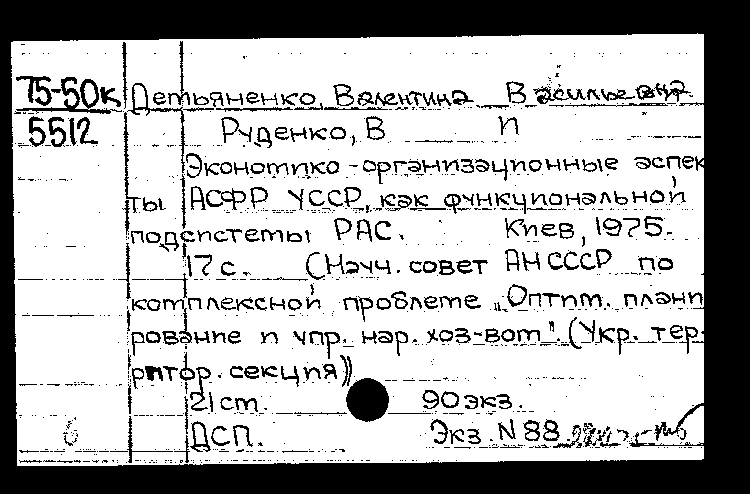 75-50к Детьяненко, Валентина Васильевна
5512 Руденко, В П
Экономико-организационные аспек
ты АСФР УССР, как функциональной
подсистемы РАС. Киев, 1975.
17 с. (Науч. совет АН СССР по
комплексной проблеме „Оптим. плани
рование и упр. нар. хоз-вом". (Укр. тер-
ритор. секция))
21 см. 90 экз.
6 ДСП. Экз. N 88